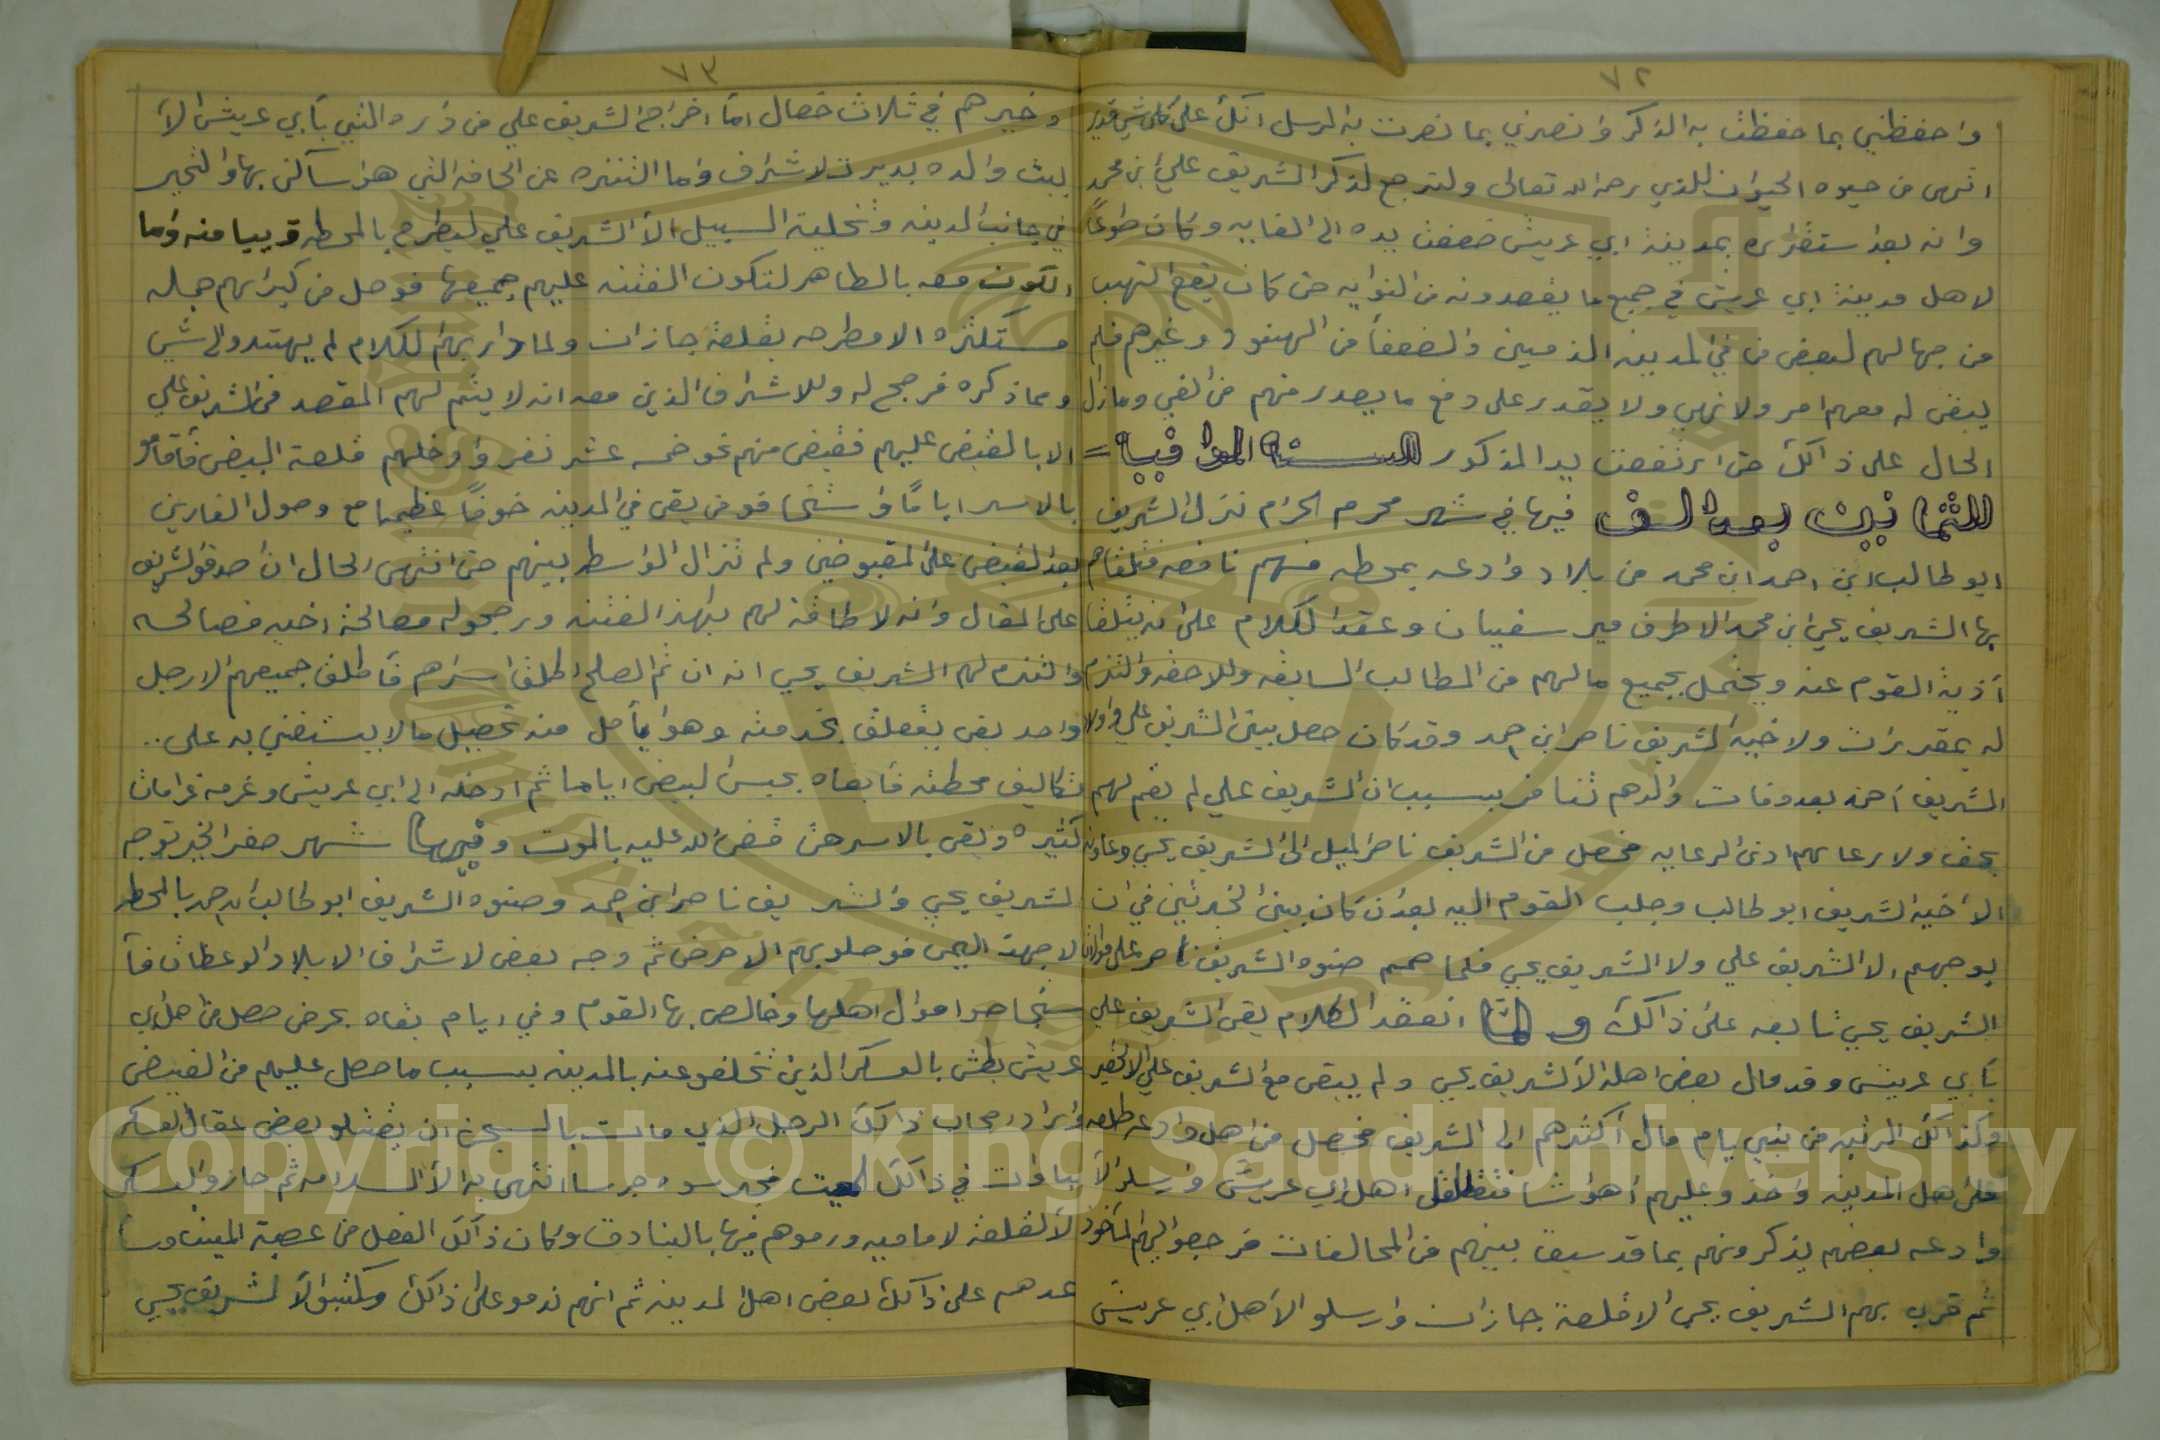 ٧٢
واحفظني بما حفظت به الذكر وانصرني بما نصرت به الرسل انك على كل شي قدير
انتهى من حيوه الحيوان للذي رحمه الله تعالى ولنرجع لذكر الشريف علي ابن محمد
وانه بعد استقراره بمدينة ابي عريش ضعفت يده الى الغايه وكان طوعاً
لاهل مدينة ابي عريش في جميع ما يقصدونه من النوايه حتى كان يقع النهب
من جهالهم لبعض من في المدينه الذميين والضعفا من الهنود وغيرهم فلم
يبقى له معهم امر ولا نهي ولا يقدر على دفع ما يصدر منهم من الغي ومازال
الحال على ذالك حتى ارتفعت يد المذكور السنة الموافيا =
للثمانين بعد الف فيها في شهر محرم الحرام نزل الشريف
ابو طالب ابن احمد ابن محمد من بلاد وادعه بمحطه منهم نافعه فتلقاهم
بها الشريف يحي ابن محمد الاطرف مير سفيان وعقد الكلام على انه يتلقا
أذية القوم عنه ويحتمل بجميع مالهم من المطالب السابقه وللاحقه والتزم
له بمقررات ولاخيه الشريف ناصر ابن احمد وقد كان حصل بين الشريف علي واولاد
الشريف احمد بعد وفات والدهم تنافر بسبب ان الشريف علي لم يقم لهم
بحق ولا رعا لهم ادنى الرعايه فحصل من الشريف ناصر الميل الى الشريف يحي وعاونه
الا اخيه الشريف ابو طالب وجلب القوم اليه بعد ان كان بين الخيرتين في ان
يوجههم الا الشريف علي ولا الشريف يحي فلما صمم صنوه الشريف ناصر على موالات
الشريف يحي تابعه على ذالك و لما انعقد الكلام بقى الشريف علي
بأبي عريش وقد مال بعض اهله الا الشريف يحي ولم يبقى مع الشريف علي الا اليسير
وكذالك المرتبه من بني يام مال أكثرهم الى الشريف فحصل من اهل وادعه طلعه
على اهل المدينه واخذ وعليهم اهواشا فتطلق اهل ابي عريش وارسلو الا
وادعه بعضهم يذكرونهم بما قد سبق بينهم من المحالفات فرجعوا اليهم المأخود
ثم قرب بهم الشريف يحي الا قلعة جازان وارسلو الا اهل ابي عريش
٧٣
وخيرهم في ثلاث خصال اما اخراج الشريف علي من داره التي بأبي عريش الا
بيت والده بديرة الاشراف واما التنزه عن الحافه التي هو ساكن بها والتحير
في جانب المدينه وتخلية السبيل الا الشريف علي ليطرح بالمحطه قريبا منه واما
الكون معه بالطاهر لتكون الفتنه عليهم جميعها فوصل من كبرائهم جمله
مستكثره الا مطرحه بقلعة جازان ولما دار بهم الكلام لم يهتدو الى شي
ومما ذكره فرجح له وللاشراف الذين معه انه لا يتم لهم المقصد في الشريف علي
الا بالقبض عليهم فقبض منهم نحو خمسه عشر نفر وادخلهم قلعة البيض فأقامو
بالاسر اياماً واستخا فو من بقى في المدينه خوفاً عظيما مع وصول الفارين
بعد القبض على المقبوضين ولم تزال الواسطه بينهم حتى انتهى الحال ان صدقو الشريف
على المقال وانه لا طاقة لهم بهذه الفتنه ورجحو له مصالحة اخيه فصالحه
والتزم لهم الشريف يحي انه ان تم الصلح اطلق اسراهم فأطلق جميعهم الا رجل
واحد بقى يتعلق بخدمته وهو يأمل منه تحصيل ما لا يستغني به على ..
تكاليف محطته فأبقاه بحبس البيض اياما ثم ادخله الى ابي عريش وغرمه غرامات
كثيره وبقى بالاسر حتى قضى الله عليه بالموت وفيها شهر صفر الخير توجه
الشريف يحي والشريف ناصر ابن احمد وصنوه الشريف ابو طالب ابن احمد بالمحطه
الا جهت اليمن فوصلو بهم الا حرض ثم وجه بعض الاشراف الا بلاد الوعظات فأ
ستجاحو اموال اهلها وخالص بها القوم وفي ايام بقاه بحرض حصل من اهل ابي
عريش بطش بالعسكر الذين تخلفو عنه بالمدينه بسبب ما حصل عليهم من القبض
وارادو اصحاب ذالك الرجل الذي مات بالسجن ان يقتلو بعض عقال العسكر
بباوات في ذالك الميت فجير سوه جرسا انتهى به الا السلامه ثم حازو العسكر
الا القلعة الاماميه ورموهم فيها بالبنادق وكان ذالك الفعل من عصبة الميت وسا
عدهم على ذالك بعض اهل المدينه ثم انهم ندمو على ذالك وكتبو الا الشريف يحي
Copyright © King Saud University